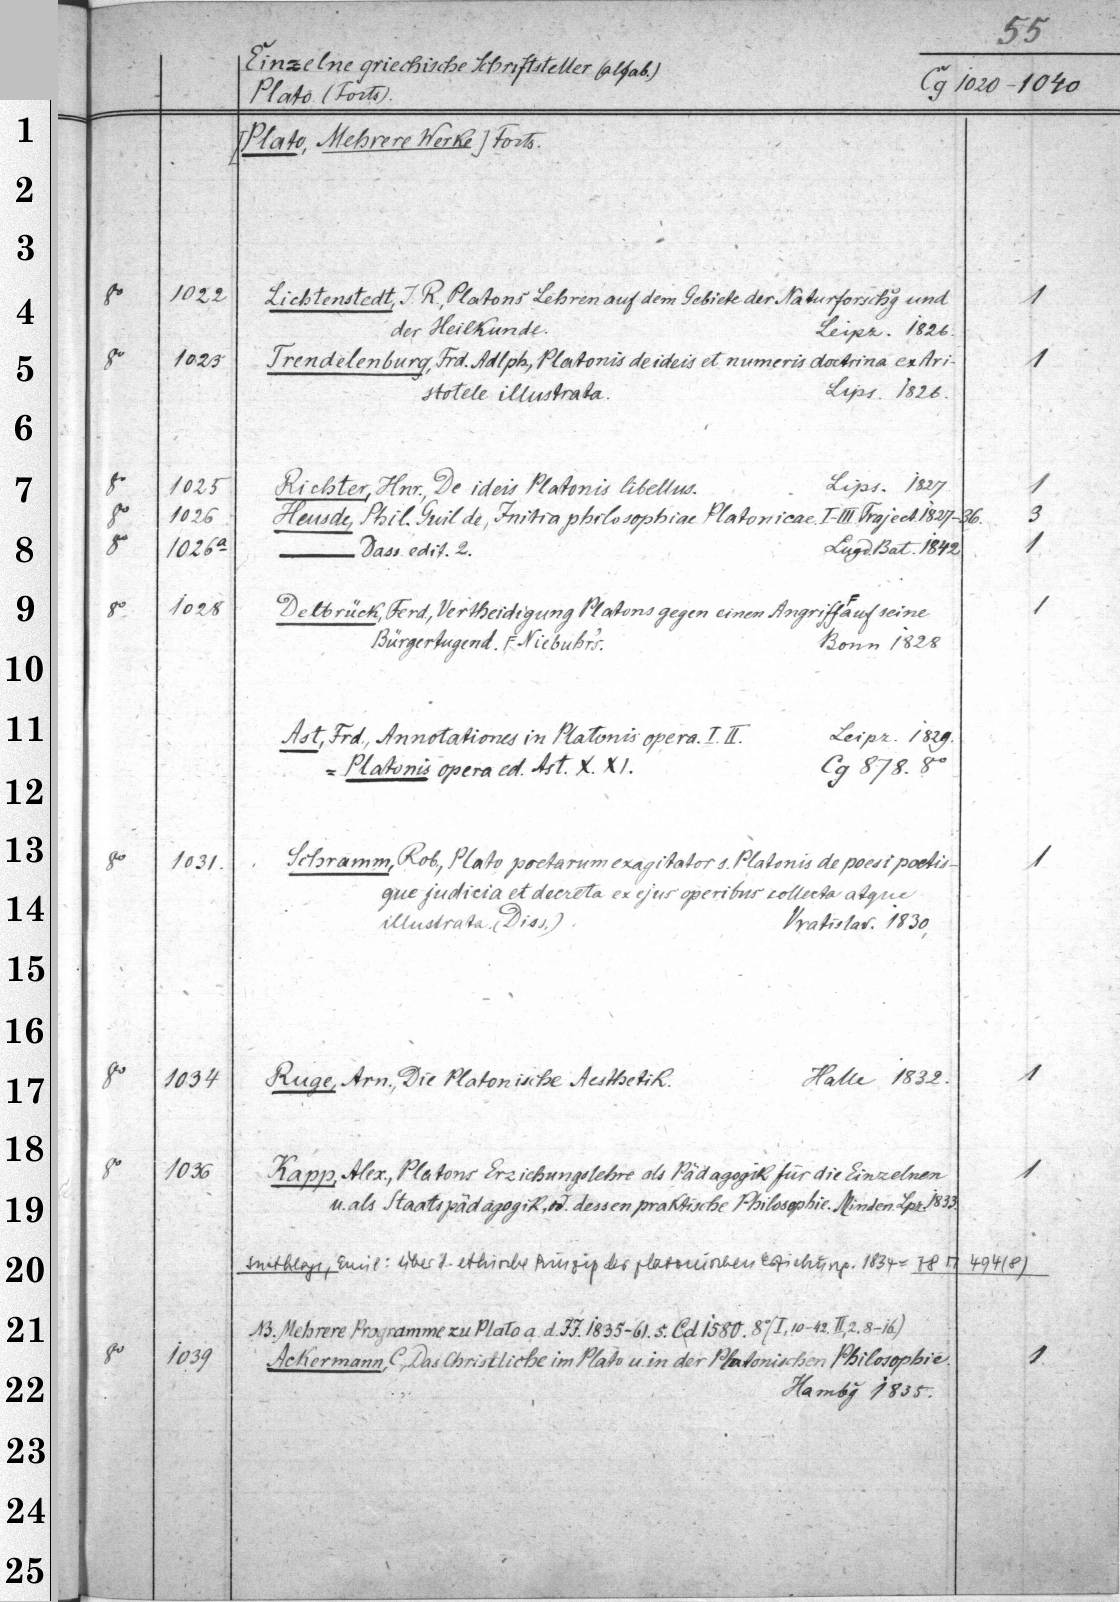 55
Einzelne griechische Schriftsteller (alfab.)
Plato (Forts).
Cg 1020-1040
1
[Plato, Mehrere Werke] Forts.
2
3
8º 1022 Lichtenstedt, J. R., Platons Lehren auf dem Gebiete der Naturforschg und 1
4
der Heilkunde. Leipz. 1826.
5
8º 1023 Trendelenburg, Frd. Adlph, Platonis de ideis et numeris doctrina ex Ari- 1
stotele illustrata. Lips. 1826.
6
7
8º 1025 Richter, Hnr., De ideis Platonis libellus. Lips. 1827 1
8º 1026 Heusde, Phil. Guil de, Initia philosophiae Platonicae. I-III. Traject. 1827-36. 3
8
8º 1026a ——— Dass. edit. 2. Lugd. Bat. 1842 1
9
8º 1028 Delbrück, Ferd, Vertheidigung Platons gegen einen Angriff F auf seine 1
Bürgertugend. F Niebuhr's. Bonn 1828
10
11
Ast, Frd., Annotationes in Platonis opera. I. II. Leipz. 1829.
= Platonis opera ed. Ast. X. XI. Cg 878. 8º
12
13
8º 1031. Schramm, Rob., Plato poetarum exagitator s. Platonis de poesi poetis- 1
que judicia et decreta ex ejus operibus collecta atque
14
illustrata. (Diss.) Vratislav. 1830,
15
16
17
8º 1034 Ruge, Arn., Die Platonische Aesthetik. Halle 1832. 1
18
8º 1036 Kapp, Alex., Platons Erziehungslehre als Pädagogik für die Einzelnen 1
19
u. als Staatspädagogik, od. dessen praktische Philosophie. Minden. Lpz. 1833.
20
Emil: über d. ethische Prinzip der platonischen Erziehung. 1834 = 494(8)
21
NB. Mehrere Programme zu Plato a. d. JJ. 1835-61. s. Cd 1580. 8º (I, 10-42. II, 2, 8-16)
8º 1039 Ackermann, C, Das Christliche im Plato u. in der Platonischen Philosophie. 1
22
Hambg 1835.
23
24
25